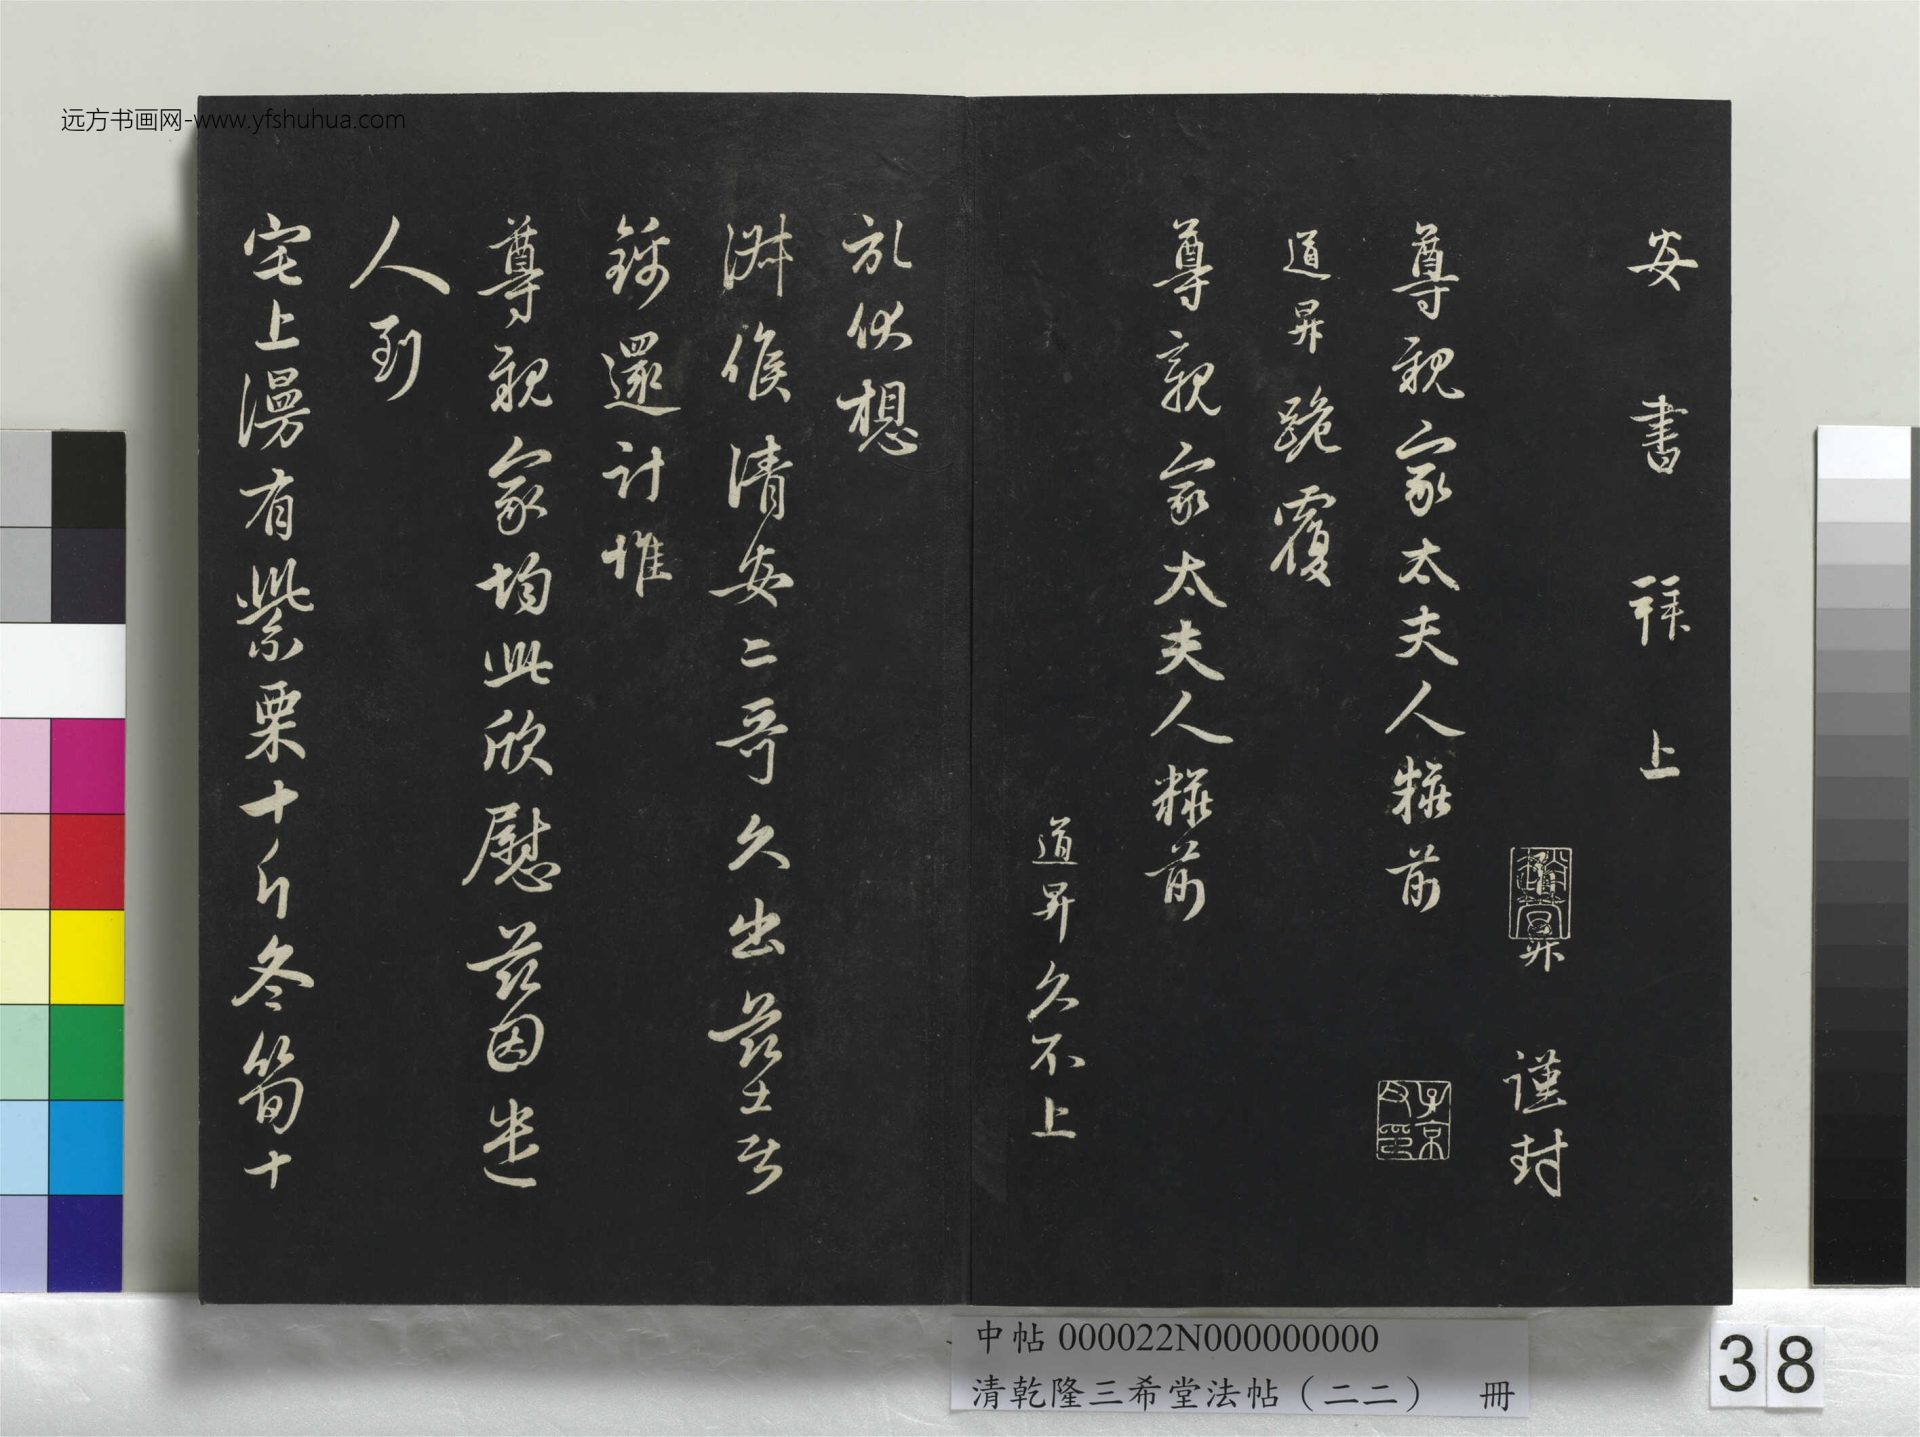 安書拜上
昇 謹封
尊親家太夫人糚前
道昇跪覆
尊親家太夫人糚前
道昇久不上
狀伏想
淑候清安二哥久出茲
錦還計惟
尊親家均此欣慰茲因遣
人到
宅上漫有紫栗十斤冬筍十
子京父印
远方书画网-www.yfshuhua.com
中帖 000022N000000000
清乾隆三希堂法帖（二二） 冊
38